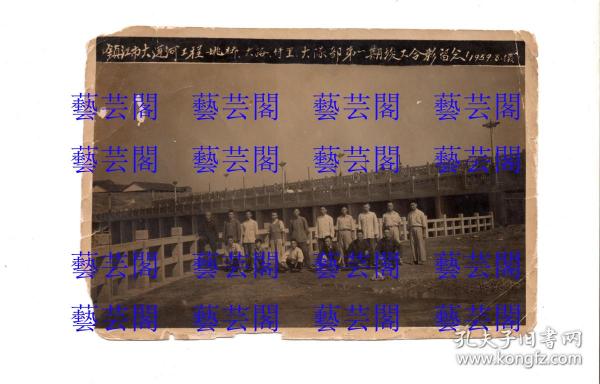 镇江市大运河工程姚桥、大路、付里、大队部第一期竣工合影留念!1959.8.
藝芸閣 藝芸閣 藝芸閣 藝芸閣
藝芸閣 藝芸閣 藝芸閣 藝芸閣
藝芸閣 藝芸閣 藝芸閣 藝芸閣
藝芸閣 藝芸閣 藝芸閣 藝芸閣
孔夫子旧书网
www.kongfz.com